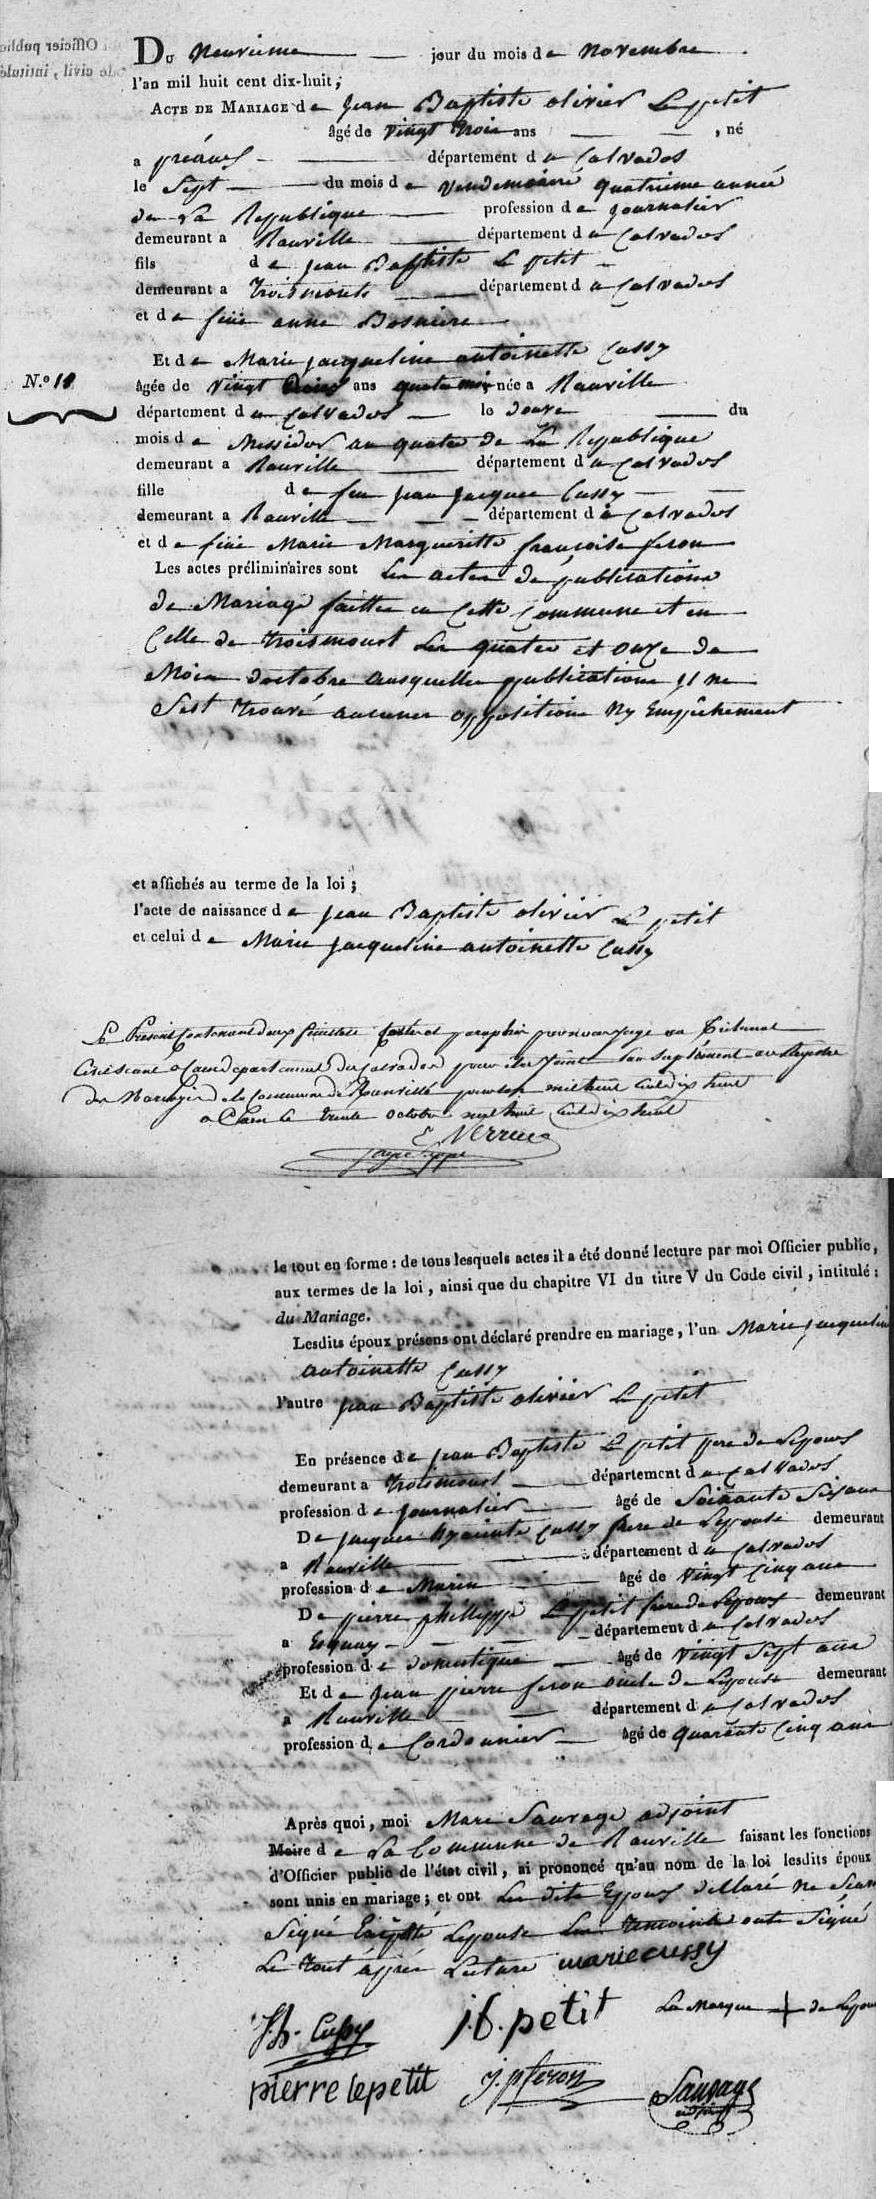 Du neuvieme jour du mois de novembre
l'an mil huit cent dix-huit;
ACTE DE MARIAGE de jean Baptiste olivier Le petit
âgé de vingt trois ans , né
a préaux département du Calvados
le Sept du mois de vendemiaire quatrieme année
de La Republique profession de journalier
demeurant a Ranville département du Calvados
fils de jean Baptiste Le petit
demeurant a troismonts département du Calvados
et de feue anne Bosniere
Et de Marie jacqueline antoinette Cussy
N.º 18
âgée de vingt ans quatre mois née a Ranville
département du Calvados le douze du
mois de Messidor an quatre de La Republique
demeurant a Ranville département du Calvados
fille de feu jean jacques Cussy
demeurant a Ranville département du Calvados
et de feue Marie Margueritte francoise feron
Les actes préliminaires sont Les actes de publications
de Mariage faittes en Cette Commune et en
Celle de troismont Les quatre et onze de
Mois doctobre ausquelles publications il ne
Sest trouvé aucunes oppositions Ny Empêchement
et affichés au terme de la loi;
l'acte de naissance de jean Baptiste olivier Le petit
et celui de Marie jacqueline antoinette Cussy
Le Present Contenant deux feuillets Cotés et paraphés par nous juge au Tribunal
Civil Seant a Caen departement du Calvados pour être joint au Suplément au Registre
des Mariages de la Commune de Ranville pour l'an mil huit Cent dix huit
a Caen Le trente octobre mil huit Cent dix huit
le tout en forme : de tous lesquels actes il a été donné lecture par moi Officier public,
aux termes de la loi, ainsi que du chapitre VI du titre V du Code civil, intitulé :
du Mariage.
Lesdits époux présens ont déclaré prendre en mariage, l'un Marie jacqueline
antoinette Cussy
l'autre jean Baptiste olivier Le petit
En présence de jean Baptiste Le petit pere de Lepoux
demeurant a troismont département du Calvados
profession de journalier âgé de Soixante Six ans
De jacques hyacinte Cussy frere de Lepouse demeurant
a Ranville département du Calvados
profession de Marin âgé de vingt Cinq ans
De pierre phillippe Le petit frere de Lepoux demeurant
a Esquay département du Calvados
profession de domestique âgé de vingt Sept ans
Et de jean pierre feron oncle de Lepouse demeurant
a Ranville département du Calvados
profession de Cordonnier âgé de quarante Cinq ans
Après quoi, moi Marc Sauvage adjoint
Maire de La Commune de Ranville faisant les fonctions
d'Officier public de l'état civil, ai prononcé qu'au nom de la loi lesdits époux
sont unis en mariage; et ont Les dits Epoux déllaré ne Scav
Signé Exepté Lepouse Les temoins onts Signé
Le tout après Lecture marie cussy
J.h. Cussy j.b. petit La Marque + de Lepoux
pierre lepetit J. p feron Sauvage
adjoint